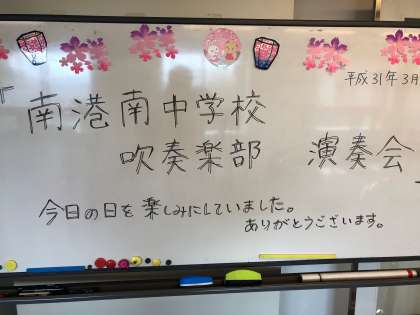 平成31年3月
南港南中学校
吹奏楽部 演奏会
今日の日を楽しみにしていました。
ありがとうございます。